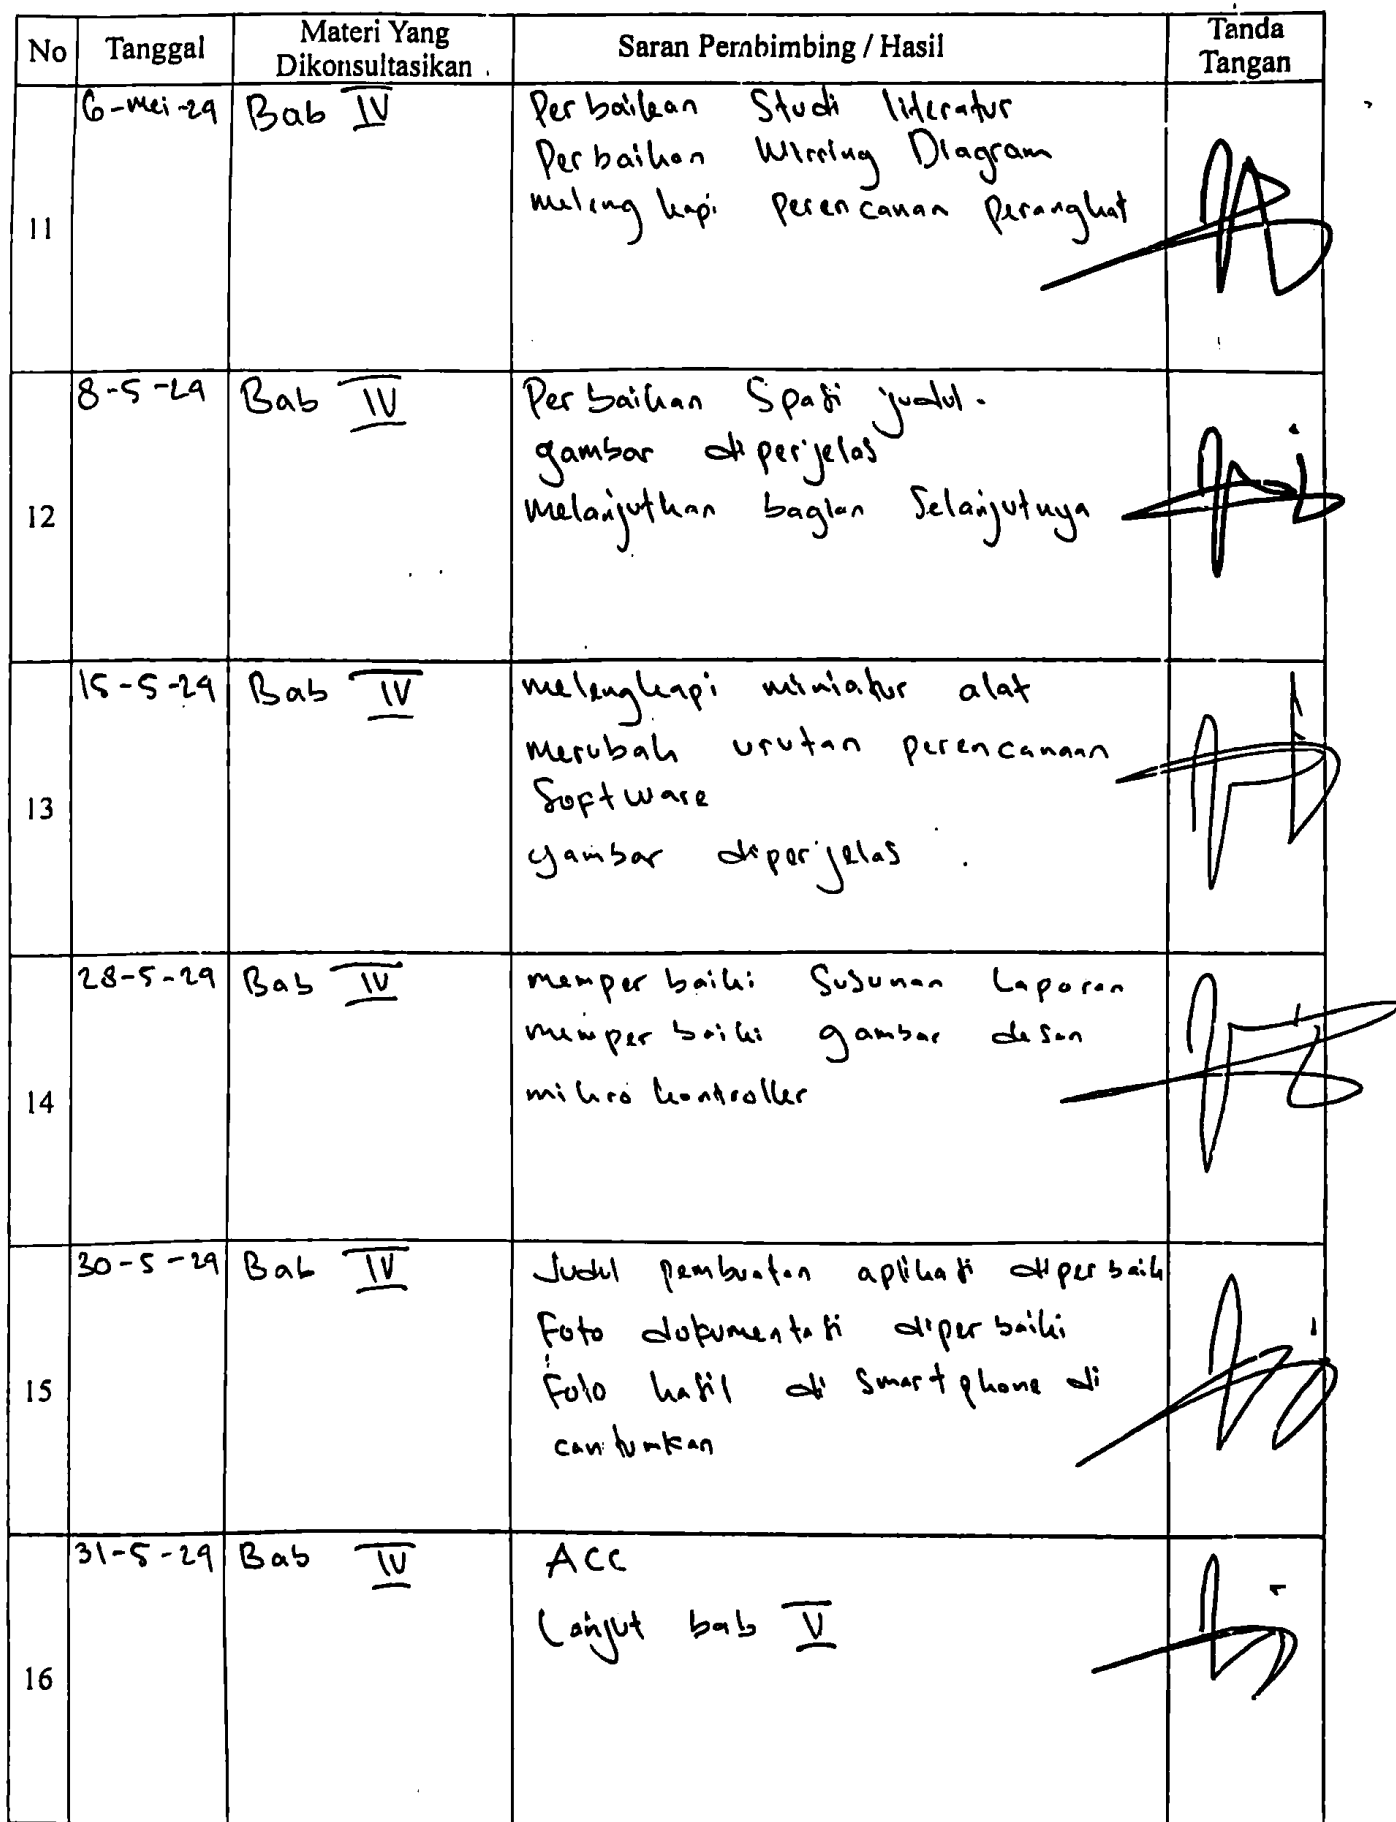 No Tanggal Materi Yang Dikonsultasikan Saran Pembimbing / Hasil Tanda Tangan
11 6-mei-29 Bab IV Perbaikan Studi literatur
Perbaikan Wirring Diagram
melengkapi perencanan perangkat
12 8-5-29 Bab IV Perbaikan Spasi judul.
gambar diperjelas
melanjutkan bagian Selanjutnya
13 15-5-29 Bab IV melengkapi miniatur alat
merubah urutan perencanaan
Software
gambar diperjelas.
14 28-5-29 Bab IV memperbaiki Susunan Laporan
memperbaiki gambar desan
mikro kontroller
15 30-5-29 Bab IV Judul pembuatan aplikasi diperbaik
Foto dokumentasi diperbaiki
Foto hasil di Smartphone di
cantumkan
16 31-5-29 Bab IV ACC
Lanjut bab V